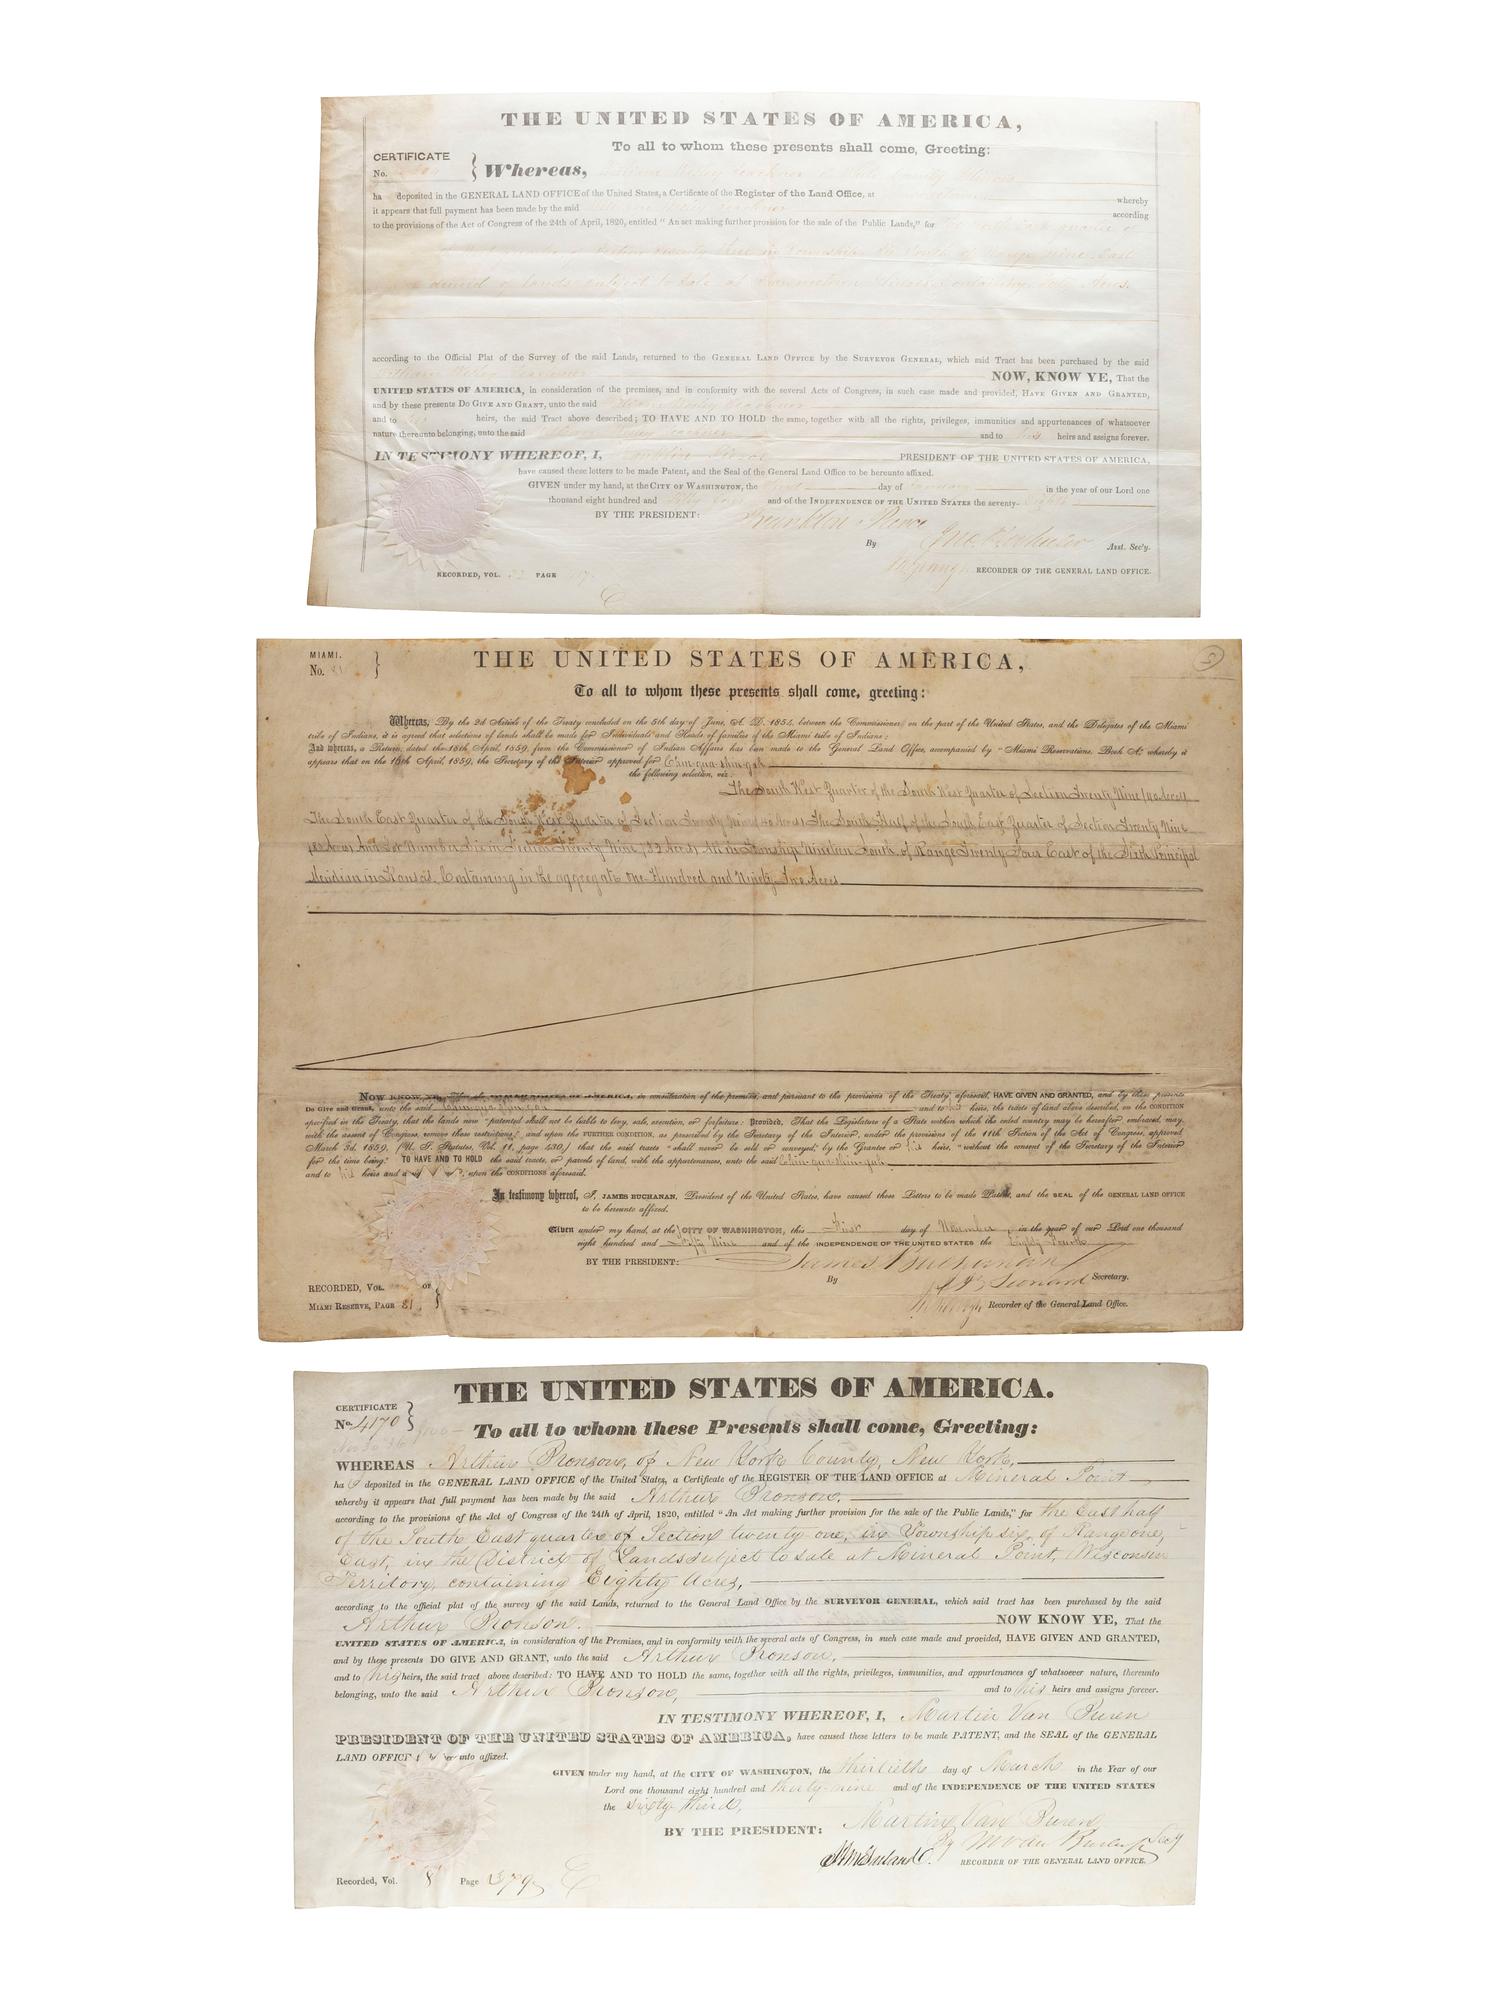 THE UNITED STATES OF AMERICA,
To all to whom these presents shall come, Greeting:
CERTIFICATE
No.
Whereas,
ha deposited in the GENERAL LAND OFFICE of the United States, a Certificate of the Register of the Land Office, at whereby
it appears that full payment has been made by the said according
to the provisions of the Act of Congress of the 24th of April, 1820, entitled "An act making further provision for the sale of the Public Lands," for quarter of
Section Twenty three in Township South of Range nine East
of lands subject to sale at Illinois containing Acres.
according to the Official Plat of the Survey of the said Lands, returned to the GENERAL LAND OFFICE by the SURVEYOR GENERAL, which said Tract has been purchased by the said
NOW, KNOW YE, That the
UNITED STATES OF AMERICA, in consideration of the premises, and in conformity with the several Acts of Congress, in such case made and provided, HAVE GIVEN AND GRANTED,
and by these presents DO GIVE AND GRANT, unto the said
and to heirs, the said Tract above described; TO HAVE AND TO HOLD the same, together with all the rights, privileges, immunities and appurtenances of whatsoever
nature thereunto belonging, unto the said and to his heirs and assigns forever.
IN TESTIMONY WHEREOF, I, Franklin Pierce PRESIDENT OF THE UNITED STATES OF AMERICA,
have caused these letters to be made Patent, and the Seal of the General Land Office to be hereunto affixed.
GIVEN under my hand, at the CITY OF WASHINGTON, the day of January in the year of our Lord one
thousand eight hundred and and of the INDEPENDENCE OF THE UNITED STATES the seventy-eighth
BY THE PRESIDENT: Franklin Pierce
By Asst. Sec'y.
RECORDER OF THE GENERAL LAND OFFICE.
RECORDED, VOL. PAGE
MIAMI.
No.
5
THE UNITED STATES OF AMERICA,
To all to whom these presents shall come, greeting:
Whereas, By the 2d Article of the Treaty concluded on the 5th day of June, A. D. 1854, between the Commissioner on the part of the United States, and the Delegates of the Miami
tribe of Indians, it is agreed that selections of lands shall be made for Individuals and Heads of families of the Miami tribe of Indians:
And whereas, a Return, dated the 18th April, 1859, from the Commissioner of Indian Affairs has been made to the General Land Office, accompanied by "Miami Reservations, Book A," whereby it
appears that on the 16th April, 1859, the Secretary of the Interior approved for Chin-gua-shin-gah
the following selection, viz:
The South West Quarter of the South West Quarter of Section Twenty Nine (40 Acres)
The South East Quarter of the South West Quarter of Section Twenty Nine (40 Acres) The South Half of the South East Quarter of Section Twenty Nine
And Lot Number Six in Section Twenty Nine (32 Acres) All in Township Nineteen South, of Range Twenty Four East of the Sixth Principal
Meridian in Kansas. Containing in the aggregate One Hundred and Ninety Two Acres
NOW KNOW YE, That the UNITED STATES OF AMERICA, in consideration of the premises, and pursuant to the provisions of the Treaty aforesaid, HAVE GIVEN AND GRANTED, and by these presents
Do Give and Grant, unto the said Chin-gua-shin-gah and to his heirs, the tracts of land above described, on the CONDITION
specified in the Treaty, that the lands now "patented shall not be liable to levy, sale, execution, or forfeiture: Provided, That the Legislature of a State within which the ceded country may be hereafter embraced, may,
with the assent of Congress, remove these restrictions;" and upon the FURTHER CONDITION, as prescribed by the Secretary of the Interior, under the provisions of the 11th Section of the Act of Congress, approved
March 3d, 1859, (U. S. Statutes, Vol. 11, page 430,) that the said tracts "shall never be sold or conveyed," by the Grantee or his heirs, "without the consent of the Secretary of the Interior
for the time being." TO HAVE AND TO HOLD the said tracts, or parcels of land, with the appurtenances, unto the said Chin-gua-shin-gah
and to his heirs and upon the CONDITIONS aforesaid.
In testimony whereof, I, JAMES BUCHANAN, President of the United States, have caused these Letters to be made Patent, and the SEAL of the GENERAL LAND OFFICE
to be hereunto affixed.
Given under my hand, at the CITY OF WASHINGTON, this First day of November, in the year of our Lord one thousand
eight hundred and Fifty Nine and of the INDEPENDENCE OF THE UNITED STATES the Eighty Fourth
BY THE PRESIDENT: James Buchanan
By J. B. Leonard Secretary.
Recorder of the General Land Office.
RECORDED, VOL. OF
MIAMI RESERVE, PAGE 81.
THE UNITED STATES OF AMERICA.
CERTIFICATE
No. 4170
To all to whom these Presents shall come, Greeting:
WHEREAS Arthur Bronson, of New York County, New York,
ha s deposited in the GENERAL LAND OFFICE of the United States, a Certificate of the REGISTER OF THE LAND OFFICE at Mineral Point
whereby it appears that full payment has been made by the said Arthur Bronson,
according to the provisions of the Act of Congress of the 24th of April, 1820, entitled "An Act making further provision for the sale of the Public Lands," for the East half
of the South East quarter of Section twenty-one, in Township six, of Range one,
East, in the District of Lands subject to sale at Mineral Point, Wisconsin
Territory, containing Eighty Acres,
according to the official plat of the survey of the said Lands, returned to the General Land Office by the SURVEYOR GENERAL, which said tract has been purchased by the said
Arthur Bronson. NOW KNOW YE, That the
UNITED STATES OF AMERICA, in consideration of the Premises, and in conformity with the several acts of Congress, in such case made and provided, HAVE GIVEN AND GRANTED,
and by these presents DO GIVE AND GRANT, unto the said Arthur Bronson,
and to his heirs, the said tract above described: TO HAVE AND TO HOLD the same, together with all the rights, privileges, immunities, and appurtenances of whatsoever nature, thereunto
belonging, unto the said Arthur Bronson, and to his heirs and assigns forever.
IN TESTIMONY WHEREOF, I, Martin Van Buren
PRESIDENT OF THE UNITED STATES OF AMERICA, have caused these letters to be made PATENT, and the SEAL of the GENERAL
LAND OFFICE to be hereunto affixed.
GIVEN under my hand, at the CITY OF WASHINGTON, the thirtieth day of March in the Year of our
Lord one thousand eight hundred and thirty-nine and of the INDEPENDENCE OF THE UNITED STATES
the sixty third,
BY THE PRESIDENT: Martin Van Buren
By M Van Buren Jr Sec'y
RECORDER OF THE GENERAL LAND OFFICE.
Recorded, Vol. 8 Page 379